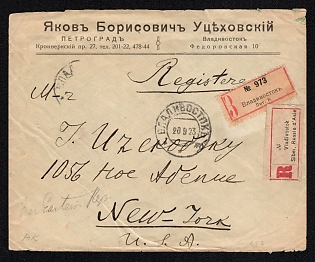 Яковъ Борисовичъ Уцѣховскій
ПЕТРОГРАДЪ
Кронверкскій пр. 27, тел. 201-22, 478-44
Владивостокъ
Федоровская 10
Registered
М-r
№ 973
Владивостокъ
ВЛАДИВОСТОКЪ
20 9 23
R
Vladivostok
J. Uzexodky
1056 Hoe Avenue
New-York
U. S. A.